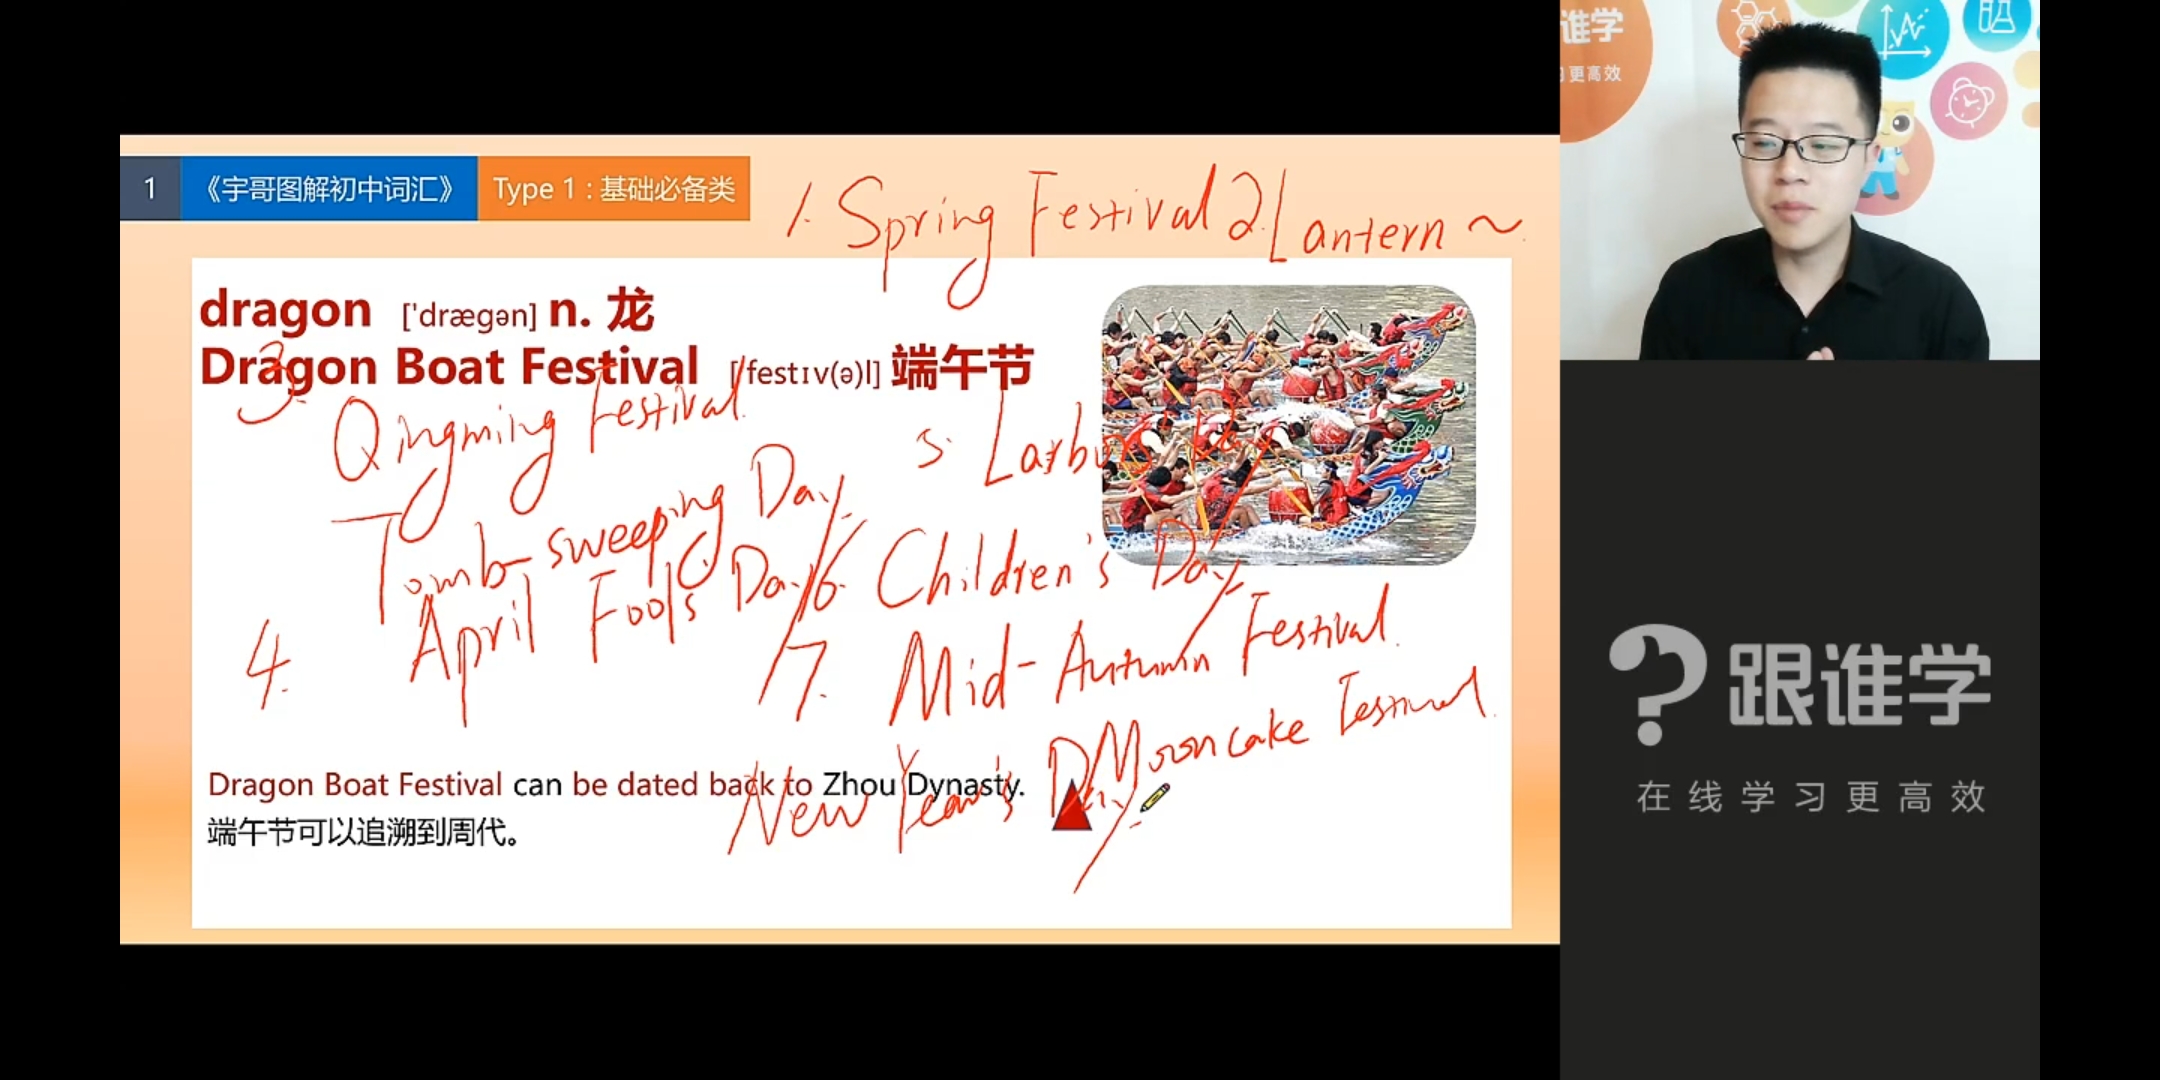 谁学
习更高效
1 《宇哥图解初中词汇》 Type 1 : 基础必备类
1. Spring Festival 2. Lantern ~
dragon ['drægən] n. 龙
Dragon Boat Festival ['festɪv(ə)l] 端午节
3. Qingming Festival
Tomb-sweeping Day
4. April Fools Day
5. Larbour Day
6. Children's Day
7. Mid-Autumn Festival
Mooncake Festival
New Year's Day
Dragon Boat Festival can be dated back to Zhou Dynasty.
端午节可以追溯到周代。
跟谁学
在线学习更高效